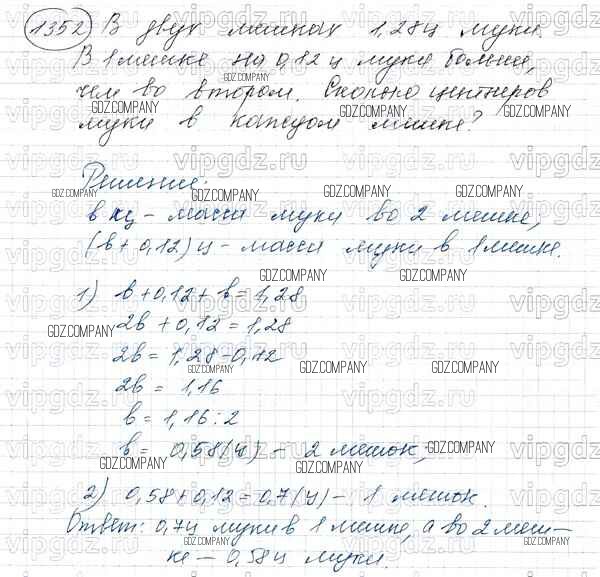 1352 В двух мешках 1,28ц муки.
В 1 мешке на 0,12 ц муки больше,
чем во втором. Сколько центнеров
муки в каждом мешке?
Решение:
в ц - масса муки во 2 мешке,
(в + 0,12) ц - масса муки в 1 мешке.
1) в + 0,12 + в = 1,28
2в + 0,12 = 1,28
2в = 1,28 - 0,12
2в = 1,16
в = 1,16 : 2
в = 0,58 (ц) - 2 мешок;
2) 0,58 + 0,12 = 0,7 (ц) - 1 мешок.
Ответ: 0,7ц муки в 1 мешке, а во 2 меш-
ке - 0,58ц муки.
GDZ.COMPANY
vipgdz.ru